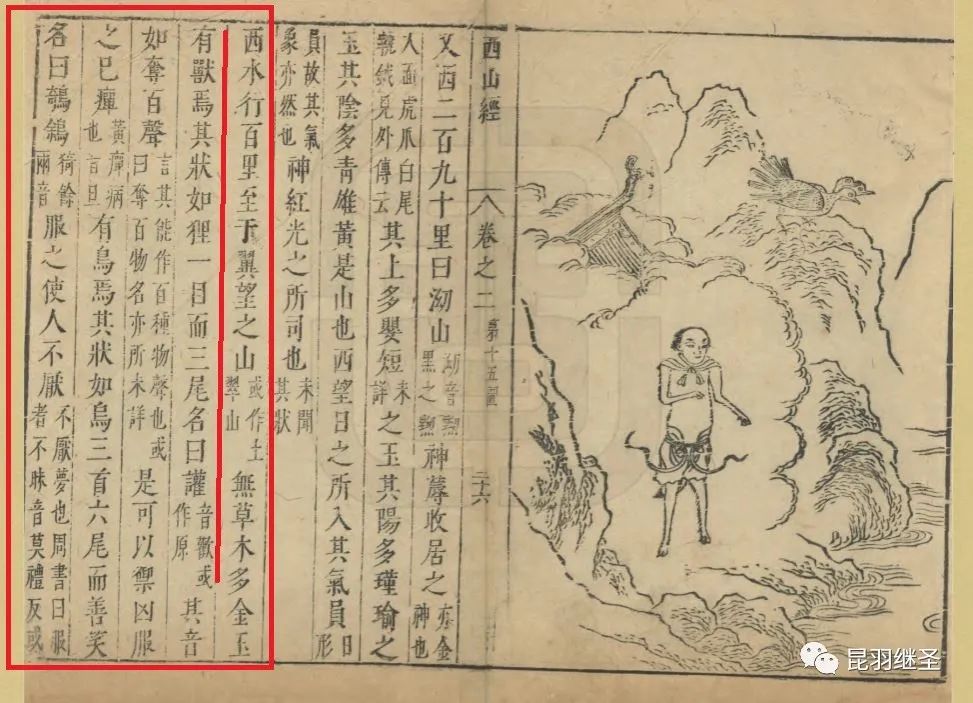 西山經 卷之二
又西二百九十里曰泑山泑音黝黑之黝神蓐收居之亦金神也
人面虎爪白尾執鉞見外傳云其上多嬰短未詳之玉其陽多瑾瑜之
玉其陰多青雄黃是山也西望日之所入其氣員日形
員故其氣象亦然也神紅光之所司也未聞其狀
西水行百里至于翼望之山或作土翠山無草木多金玉
有獸焉其狀如狸一目而三尾名曰讙音歡或作原其音
如奪百聲言其能作百種物聲也或曰奪百物名亦所未詳是可以禦凶服
之已癉黃癉病也音旦有鳥焉其狀如烏三首六尾而善笑
名曰鵸鵌猗餘兩音服之使人不厭不厭夢也周書曰服者不昧音莫禮反或
昆羽继圣